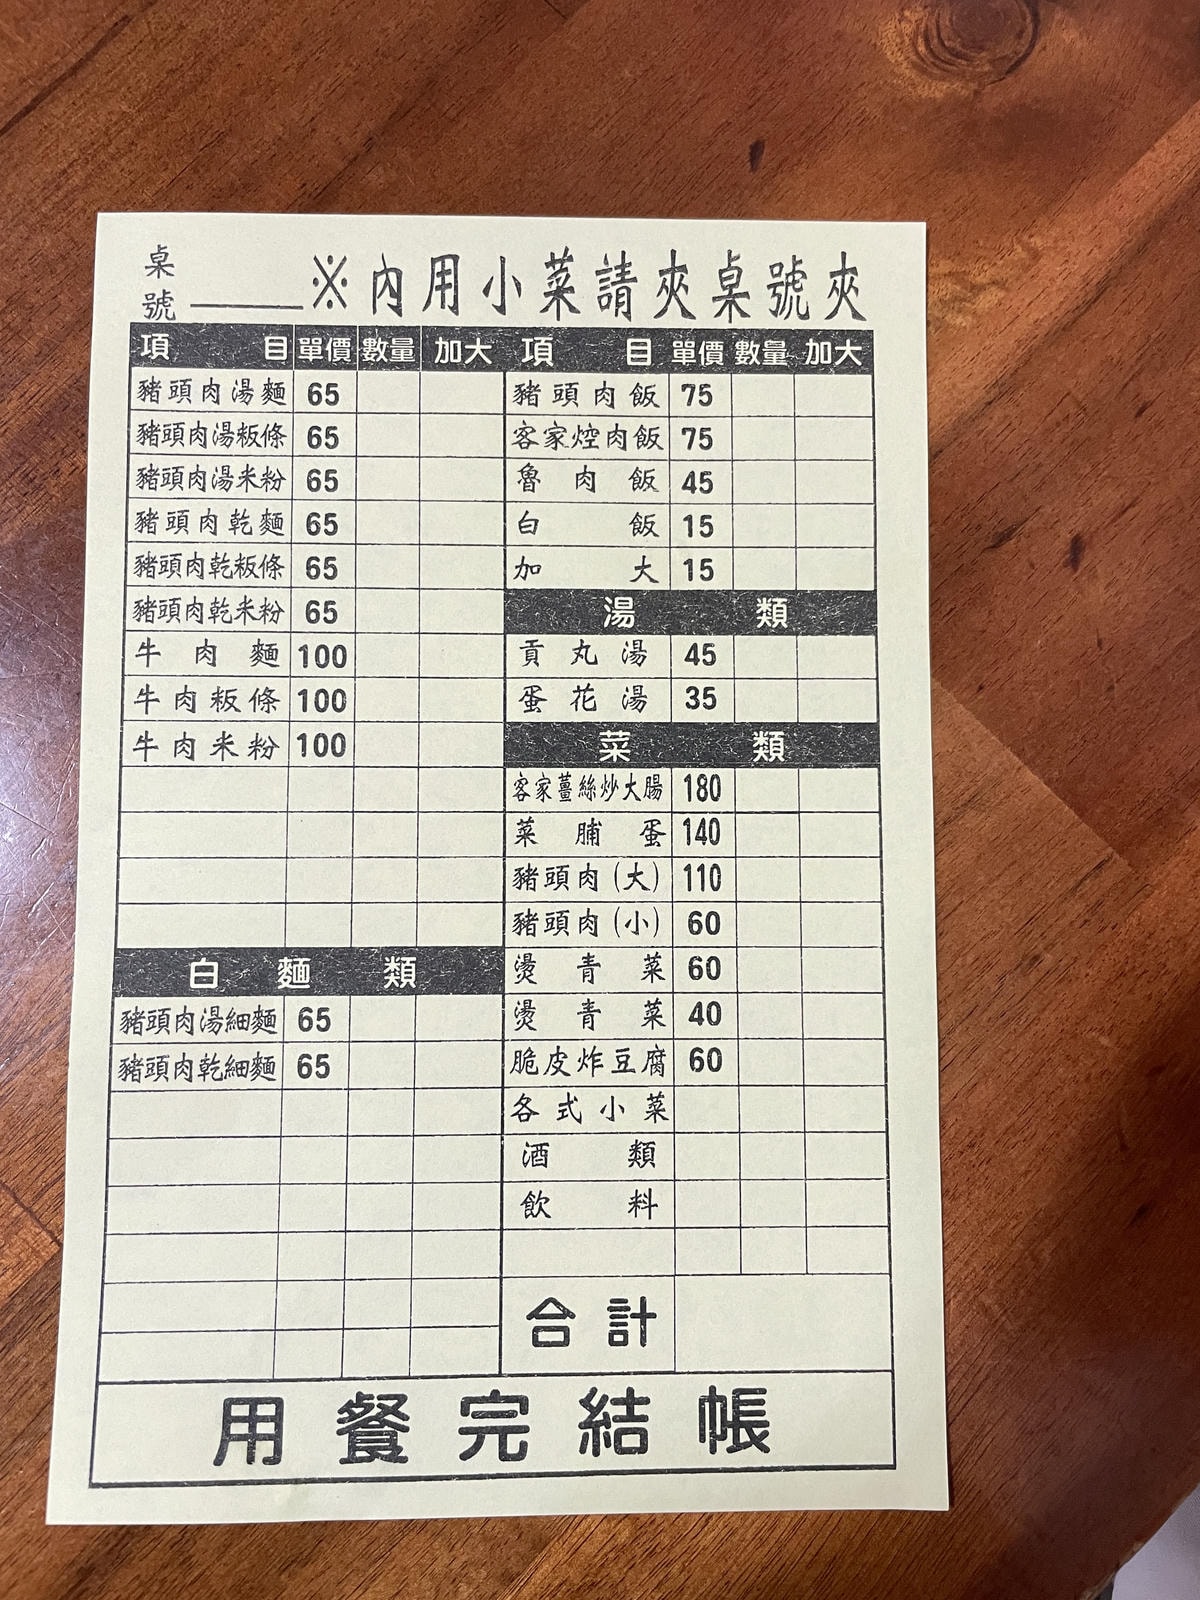 桌號 ※內用小菜請夾桌號夾
項目 單價 數量 加大
豬頭肉湯麵 65
豬頭肉湯粄條 65
豬頭肉湯米粉 65
豬頭肉乾麵 65
豬頭肉乾粄條 65
豬頭肉乾米粉 65
牛肉麵 100
牛肉粄條 100
牛肉米粉 100
白麵類
豬頭肉湯細麵 65
豬頭肉乾細麵 65
項目 單價 數量 加大
豬頭肉飯 75
客家焢肉飯 75
魯肉飯 45
白飯 15
加大 15
湯類
貢丸湯 45
蛋花湯 35
菜類
客家薑絲炒大腸 180
菜脯蛋 140
豬頭肉(大) 110
豬頭肉(小) 60
燙青菜 60
燙青菜 40
脆皮炸豆腐 60
各式小菜
酒類
飲料
合計
用餐完結帳